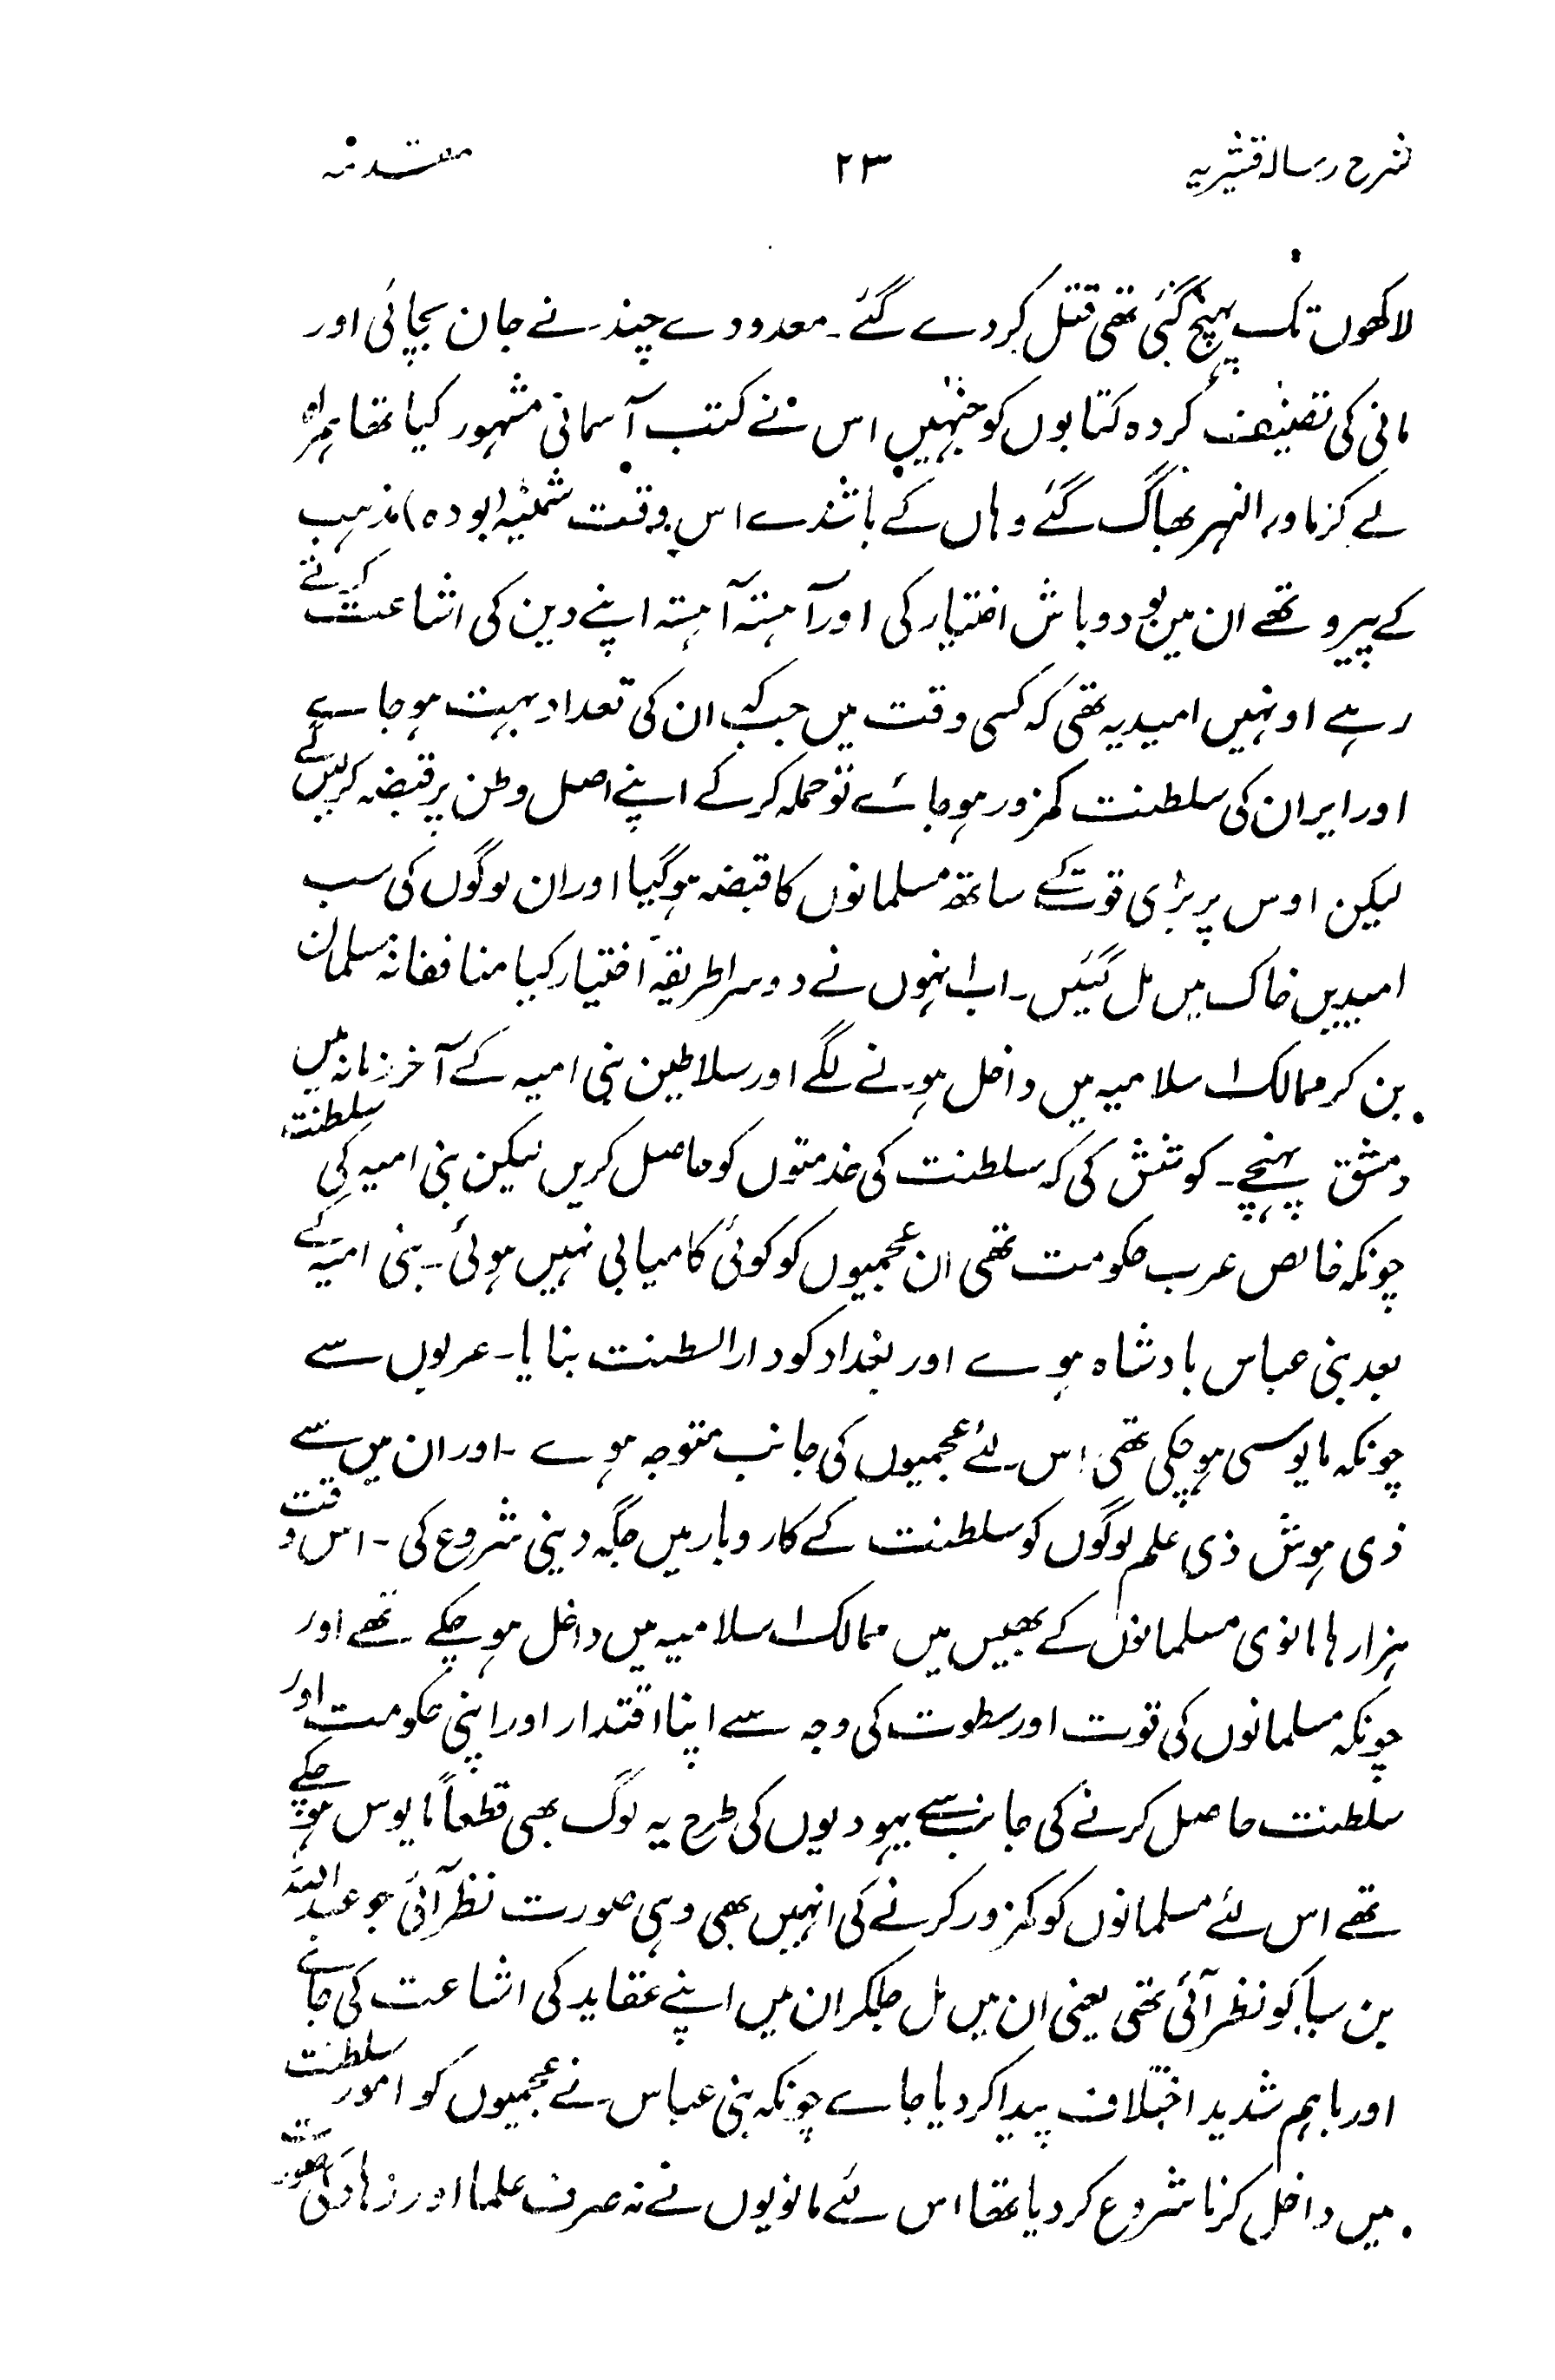 شرح رسالہ قشیریہ ۲۳ مقدمہ
لاکھوں تک پہنچ گئی تھی قتل کردے گئے۔ معدودے چند نے جان بچائی اور
مانی کی تصنیف کردہ کتابوں کو جنہیں اس نے کتب آسمانی مشہور کیا تھا ہمراہ
لے کر ماوراالنہر بھاگ گئے وہاں کے باشندے اس وقت شمنیہ (بودہ) مذہب
کے پیرو تھے ان میں بودوباش اختیار کی اور آہستہ آہستہ اپنے دین کی اشاعت کرتے
رہے اونہیں امید یہ تھی کہ کسی وقت میں جب کہ ان کی تعداد بہت ہوجاے
اور ایران کی سلطنت کمزور ہوجائے تو حملہ کرکے اپنے اصل وطن پر قبضہ کرلیں گے
لیکن اوس پر بڑی قوت کے ساتھ مسلمانوں کا قبضہ ہوگیا اور ان لوگوں کی سب
امیدیں خاک میں مل گئیں۔ اب انہوں نے دوسرا طریقہ اختیار کیا منافقانہ مسلمان
بن کر ممالک اسلامیہ میں داخل ہونے لگے اور سلاطین بنی امیہ کے آخر زمانہ میں
دمشق پہنچے۔ کوشش کی کہ سلطنت کی خدمتوں کو حاصل کریں لیکن بنی امیہ کی سلطنت
چونکہ خالص عرب حکومت تھی ان عجمیوں کو کوئی کامیابی نہیں ہوئی۔ بنی امیہ کے
بعد بنی عباس بادشاہ ہوے اور بغداد کو دارالسطنت بنایا۔ عربوں سے
چونکہ مایوسی ہوچکی تھی اس لئے عجمیوں کی جانب متوجہ ہوے۔ اور ان میں سے
ذی ہوش ذی علم لوگوں کو سلطنت کے کاروبار میں جگہ دینی شروع کی۔ اس وقت
ہزارہا مانوی مسلمانوں کے بھیس میں ممالک اسلامیہ میں داخل ہوچکے تھے اور
چونکہ مسلمانوں کی قوت اور سطوت کی وجہ سے اپنا اقتدار اور اپنی حکومت اور
سلطنت حاصل کرنے کی جانب سے یہودیوں کی طرح یہ لوگ بھی قطعاً مایوس ہوچکے
تھے اس لئے مسلمانوں کو کمزور کرنے کی انہیں بھی وہی صورت نظر آئی جو عبداللہ
بن سبا کو نظر آئی تھی یعنی ان میں مل جلکر ان میں اپنے عقاید کی اشاعت کی جاے
اور باہم شدید اختلاف پیدا کردیا جاے چونکہ بنی عباس نے عجمیوں کو امور سلطنت
میں داخل کرنا شروع کردیا تھا اس لئے مانویوں نے نہ صرف علما اور زہاد کی صورت